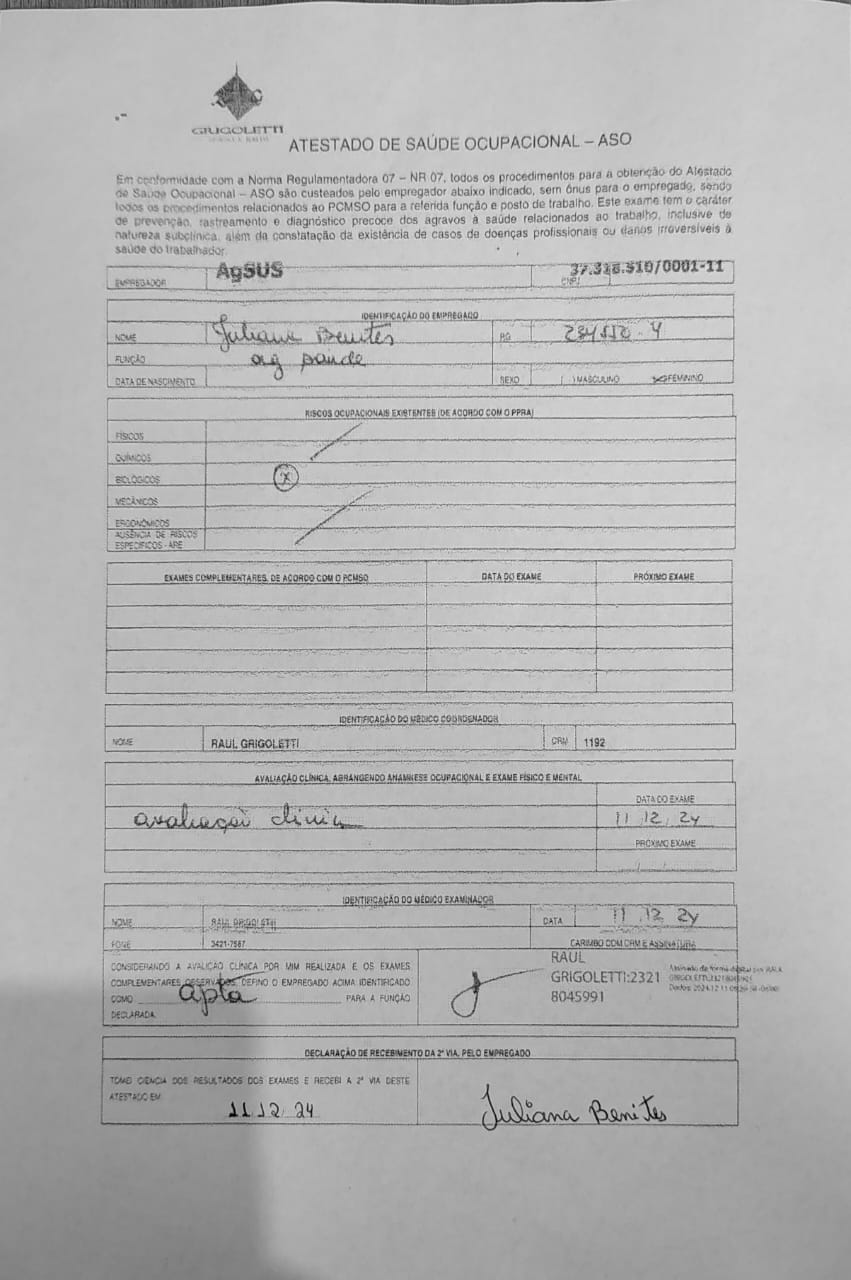 GRIGOLETTI
ATESTADO DE SAÚDE OCUPACIONAL – ASO
Em conformidade com a Norma Regulamentadora 07 – NR 07, todos os procedimentos para a obtenção do Atestado
de Saúde Ocupacional – ASO são custeados pelo empregador abaixo indicado, sem ônus para o empregado, sendo
todos os procedimentos relacionados ao PCMSO para a referida função e posto de trabalho. Este exame tem o caráter
de prevenção, rastreamento e diagnóstico precoce dos agravos à saúde relacionados ao trabalho, inclusive de
natureza subclínica, além da constatação da existência de casos de doenças profissionais ou danos irreversíveis à
saúde do trabalhador.
EMPREGADOR AgSUS CNPJ 37.318.510/0001-11
IDENTIFICAÇÃO DO EMPREGADO
NOME Juliana Benites RG
FUNÇÃO
DATA DE NASCIMENTO SEXO ( ) MASCULINO (X) FEMININO
RISCOS OCUPACIONAIS EXISTENTES (DE ACORDO COM O PPRA)
FÍSICOS
QUÍMICOS
BIOLÓGICOS (X)
MECÂNICOS
ERGONÔMICOS
AUSÊNCIA DE RISCOS
ESPECÍFICOS - ARE
EXAMES COMPLEMENTARES, DE ACORDO COM O PCMSO DATA DO EXAME PRÓXIMO EXAME
IDENTIFICAÇÃO DO MÉDICO COORDENADOR
NOME RAUL GRIGOLETTI CRM 1192
AVALIAÇÃO CLÍNICA, ABRANGENDO ANAMNESE OCUPACIONAL E EXAME FÍSICO E MENTAL
DATA DO EXAME
avaliação clínica 11 12 24
PRÓXIMO EXAME
IDENTIFICAÇÃO DO MÉDICO EXAMINADOR
NOME RAUL GRIGOLETTI DATA 11 12 24
FONE 3421-7567 CARIMBO COM CRM E ASSINATURA
CONSIDERANDO A AVALIÇÃO CLÍNICA POR MIM REALIZADA E OS EXAMES
COMPLEMENTARES OBSERVADOS, DEFINO O EMPREGADO ACIMA IDENTIFICADO
COMO apta PARA A FUNÇÃO
DECLARADA.
RAUL
GRIGOLETTI:2321
8045991
Assinado de forma digital por RAUL
DECLARAÇÃO DE RECEBIMENTO DA 2ª VIA, PELO EMPREGADO
TOMEI CIENCIA DOS RESULTADOS DOS EXAMES E RECEBI A 2ª VIA DESTE
ATESTADO EM 11 12 24
Juliana Benites